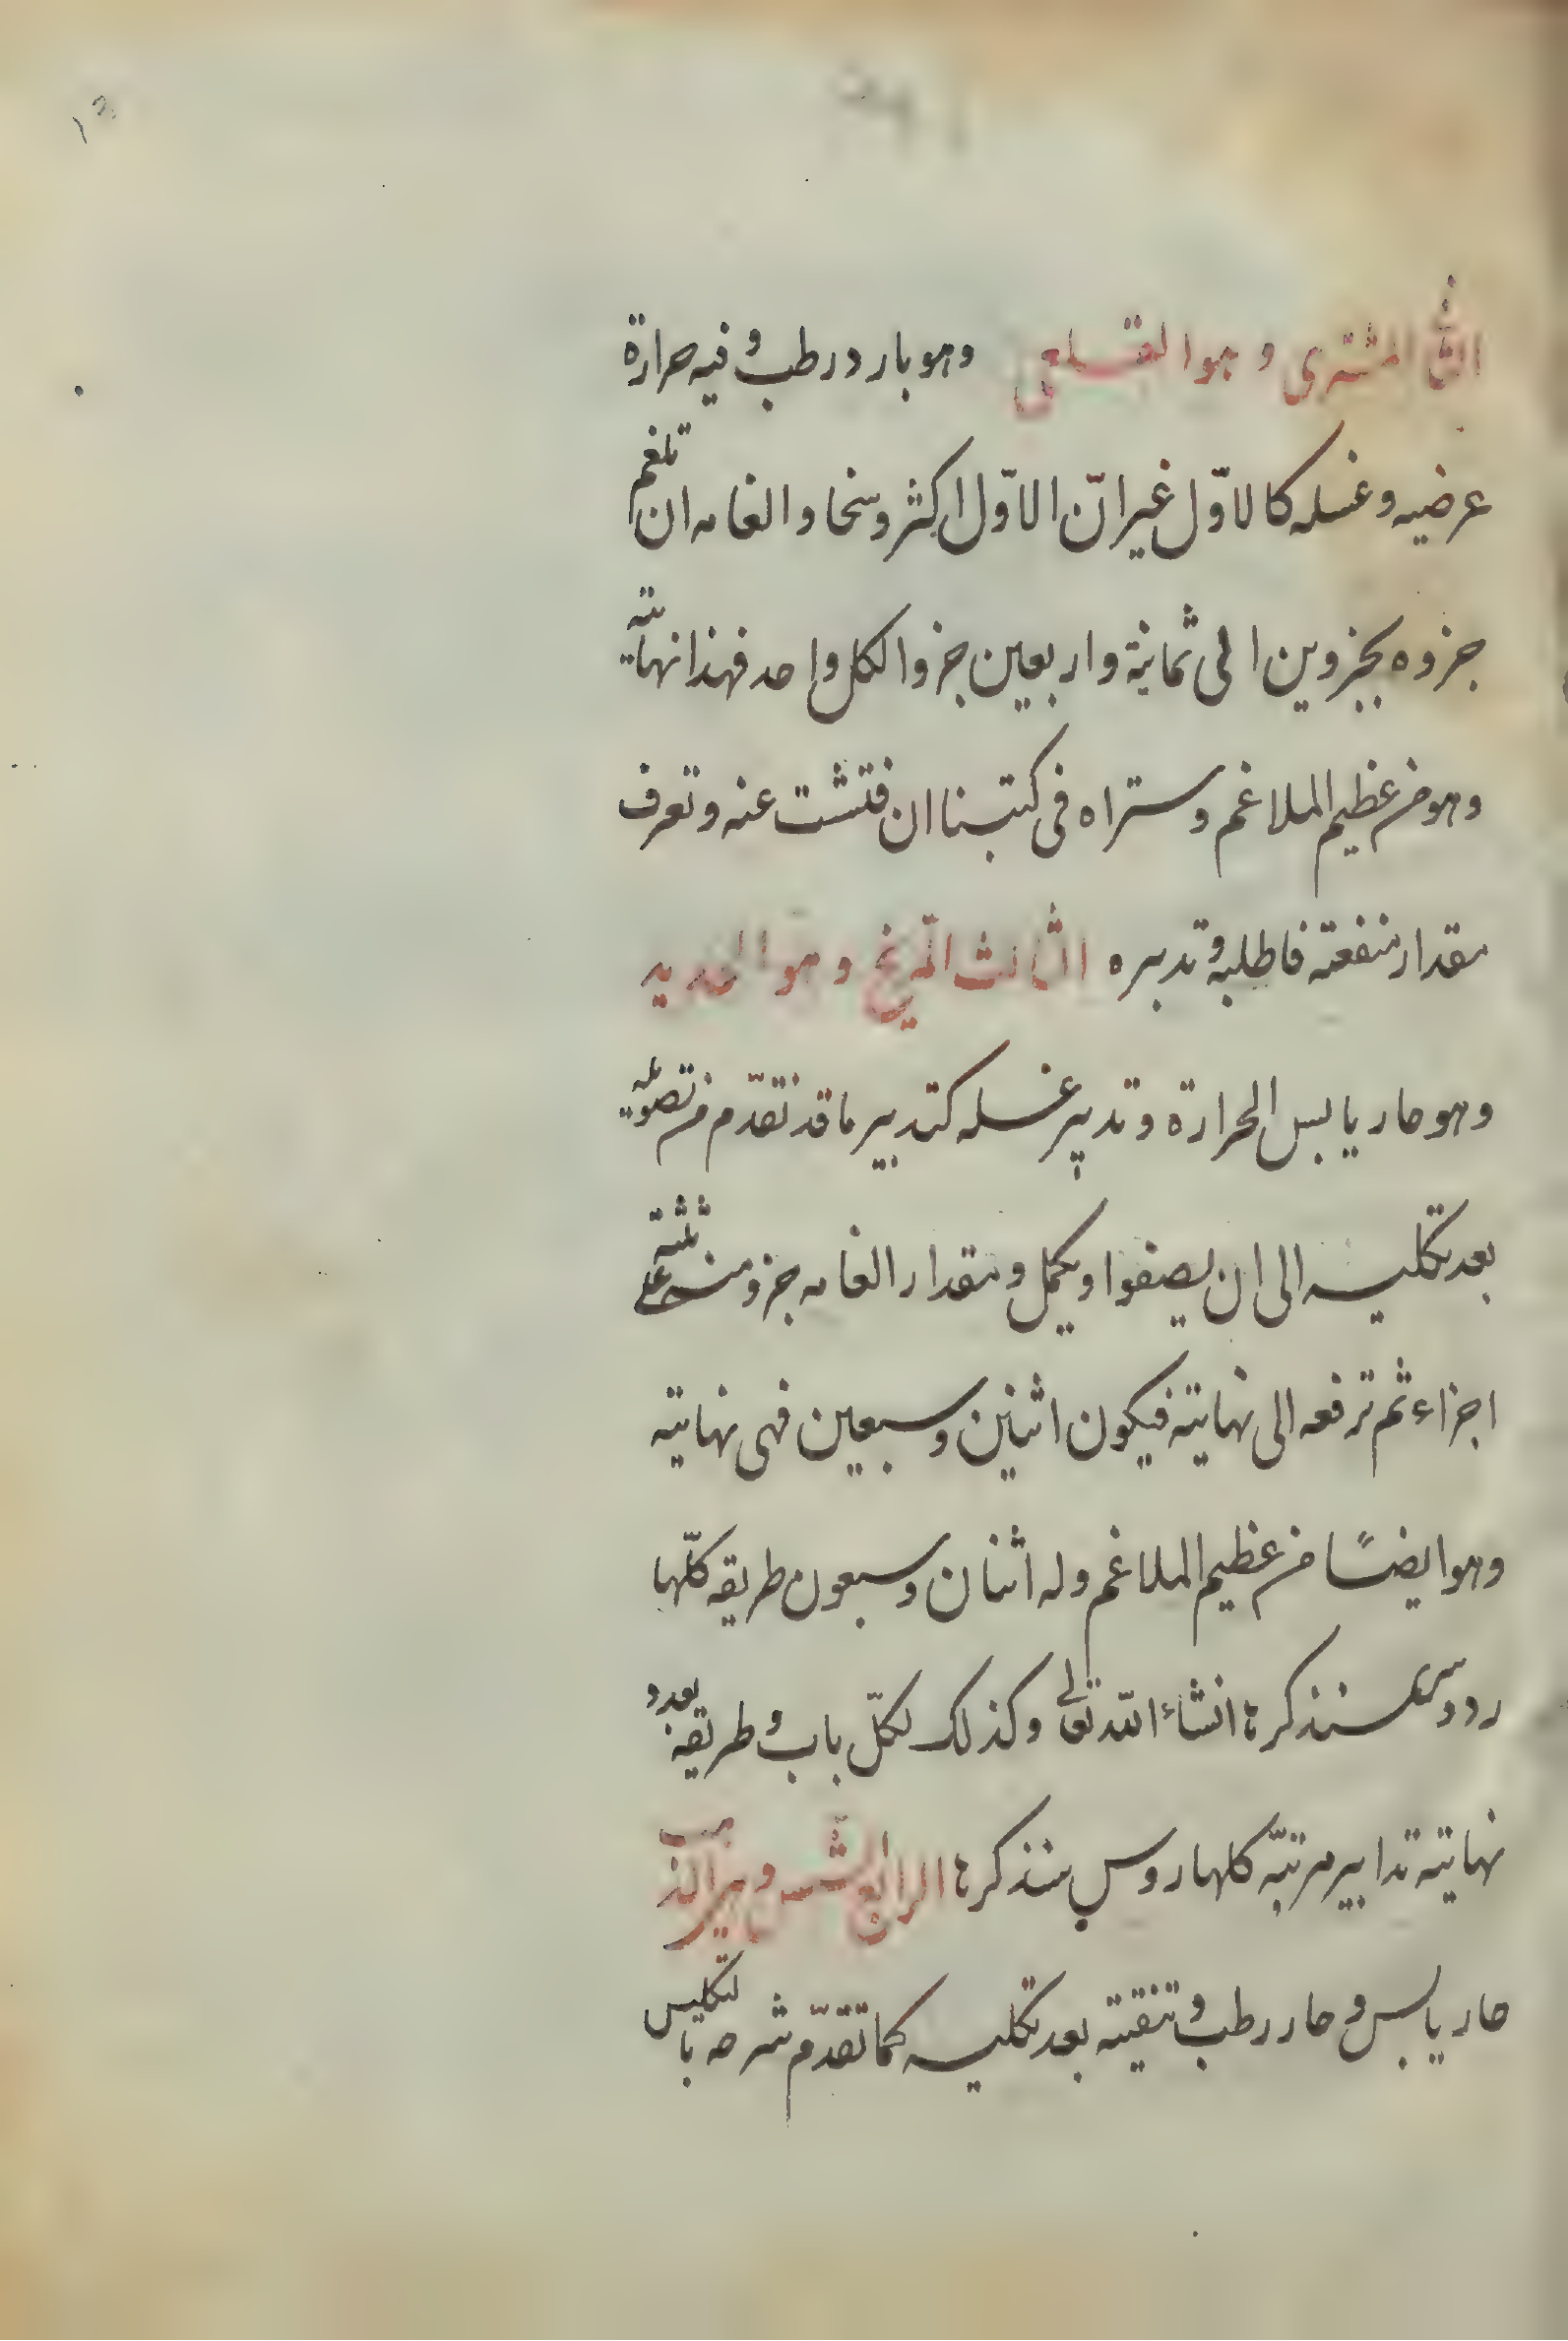 الثانى المشترى وهو القلعى وهو بارد رطب وفيه حرارة
عرضيه وغسله كالاوّل غير انّ الاوّل اكثر وسخا والغامه ان تلغم
جزوه بجزوين الى ثمانية واربعين جزوا لكل واحد فهذا نهايته
وهو من عظيم الملاغم وستراه فى كتبنا ان فتشت عنه وتعرف
مقدار منفعته فاطلبه وتدبره الثالث المريخ وهو الحديد
وهو حار يابس الحرارة وتدبير غسله كتدبير ما قد تقدّم من تصويله
بعد تكليسه الى ان يصفوا ويكمل ومقدار الغامه جزو منه على ثلثة
اجزاء ثم ترفعه الى نهايته فيكون اثنين وسبعين فهى نهايته
وهو ايضًا من عظيم الملاغم وله اثنان وسبعون طريقه كلّها
سنذكرها انشاء الله تعالى وكذلك لكلّ باب وطريقه بعد و
نهايته تدابير مرتبّه كلها روس سنذكرها الرابع الشمس وهو الذهب
حار يابس وحار رطب وتنقيته بعد تكليسه كما تقدّم شرحه بالتكليس